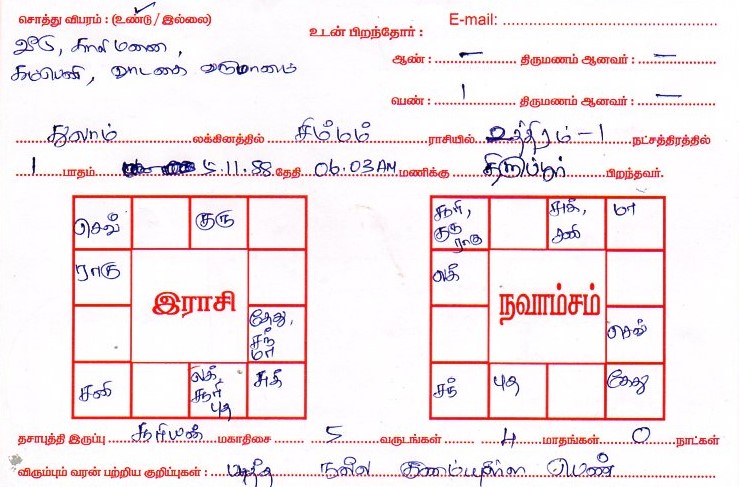 சொத்து விபரம் : (உண்டு / இல்லை)
வீடு, காலி மனை,
கம்பெனி, வாடகை வருமானம்
உடன் பிறந்தோர் :
E-mail:
ஆண் : – திருமணம் ஆனவர் : –
பெண் : 1 திருமணம் ஆனவர் : –
துலாம் லக்கினத்தில் சிம்மம் ராசியில் உத்திரம் - 1 நட்சத்திரத்தில்
1 பாதம் 5.11.88 தேதி 06.03 AM மணிக்கு திருப்பூர் பிறந்தவர்.
செவ் குரு
ராகு
இராசி
கேது, சந் மா
சனி லக், சூரி புத சுக்
சூரி, குரு ராகு சுக், சனி மா
லக்
நவாம்சம்
செவ்
சந் புத கேது
தசாபுத்தி இருப்பு சூரியன் மகாதிசை 5 வருடங்கள் 4 மாதங்கள் 0 நாட்கள்
விரும்பும் வரன் பற்றிய குறிப்புகள் : நல்ல குணம்முள்ள பெண்